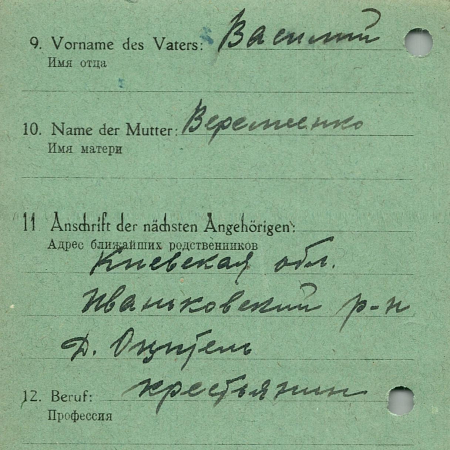 9. Vorname des Vaters: Василий
Имя отца
10. Name der Mutter: Веремиенко
Имя матери
11 Anschrift der nächsten Angehörigen:
Адрес ближайших родственников
Киевская обл.
Иваньковский р-н
Д.
12. Beruf: крестьянин
Профессия